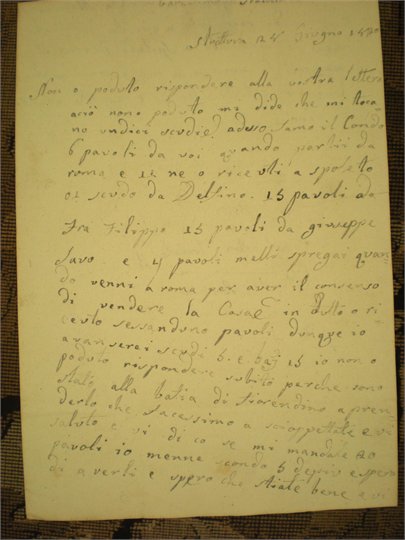 25 Giugno 18
Non o poduto rispondere alla vostra lettera
acio nono poduto mi dide che mi toca
no undici scudie adeso famo il Conto
6 pavoli da voi quando partii da
roma e 12 ne o riceuti a spoleto
01 scudo da Delfino. 15 pavoli da
Fra Filippo 15 pavoli da giuseppe
Savo e 4 pavoli melli spregai quan
do venni a roma per aver il consenso
di vendere la Casa in tutto o ri
ceuto sessanduno pavoli dunque io
avanserei scudi 5. e baj 15 io non o
poduto rispondere subito perche sono
stato alla batia di fiorendino a pren
derlo che facessimo a e vi
saluto e vi di co se mi mandate 20
pavoli io menne scondo 5 depiu e spero
di averli e spero che state bene e vi